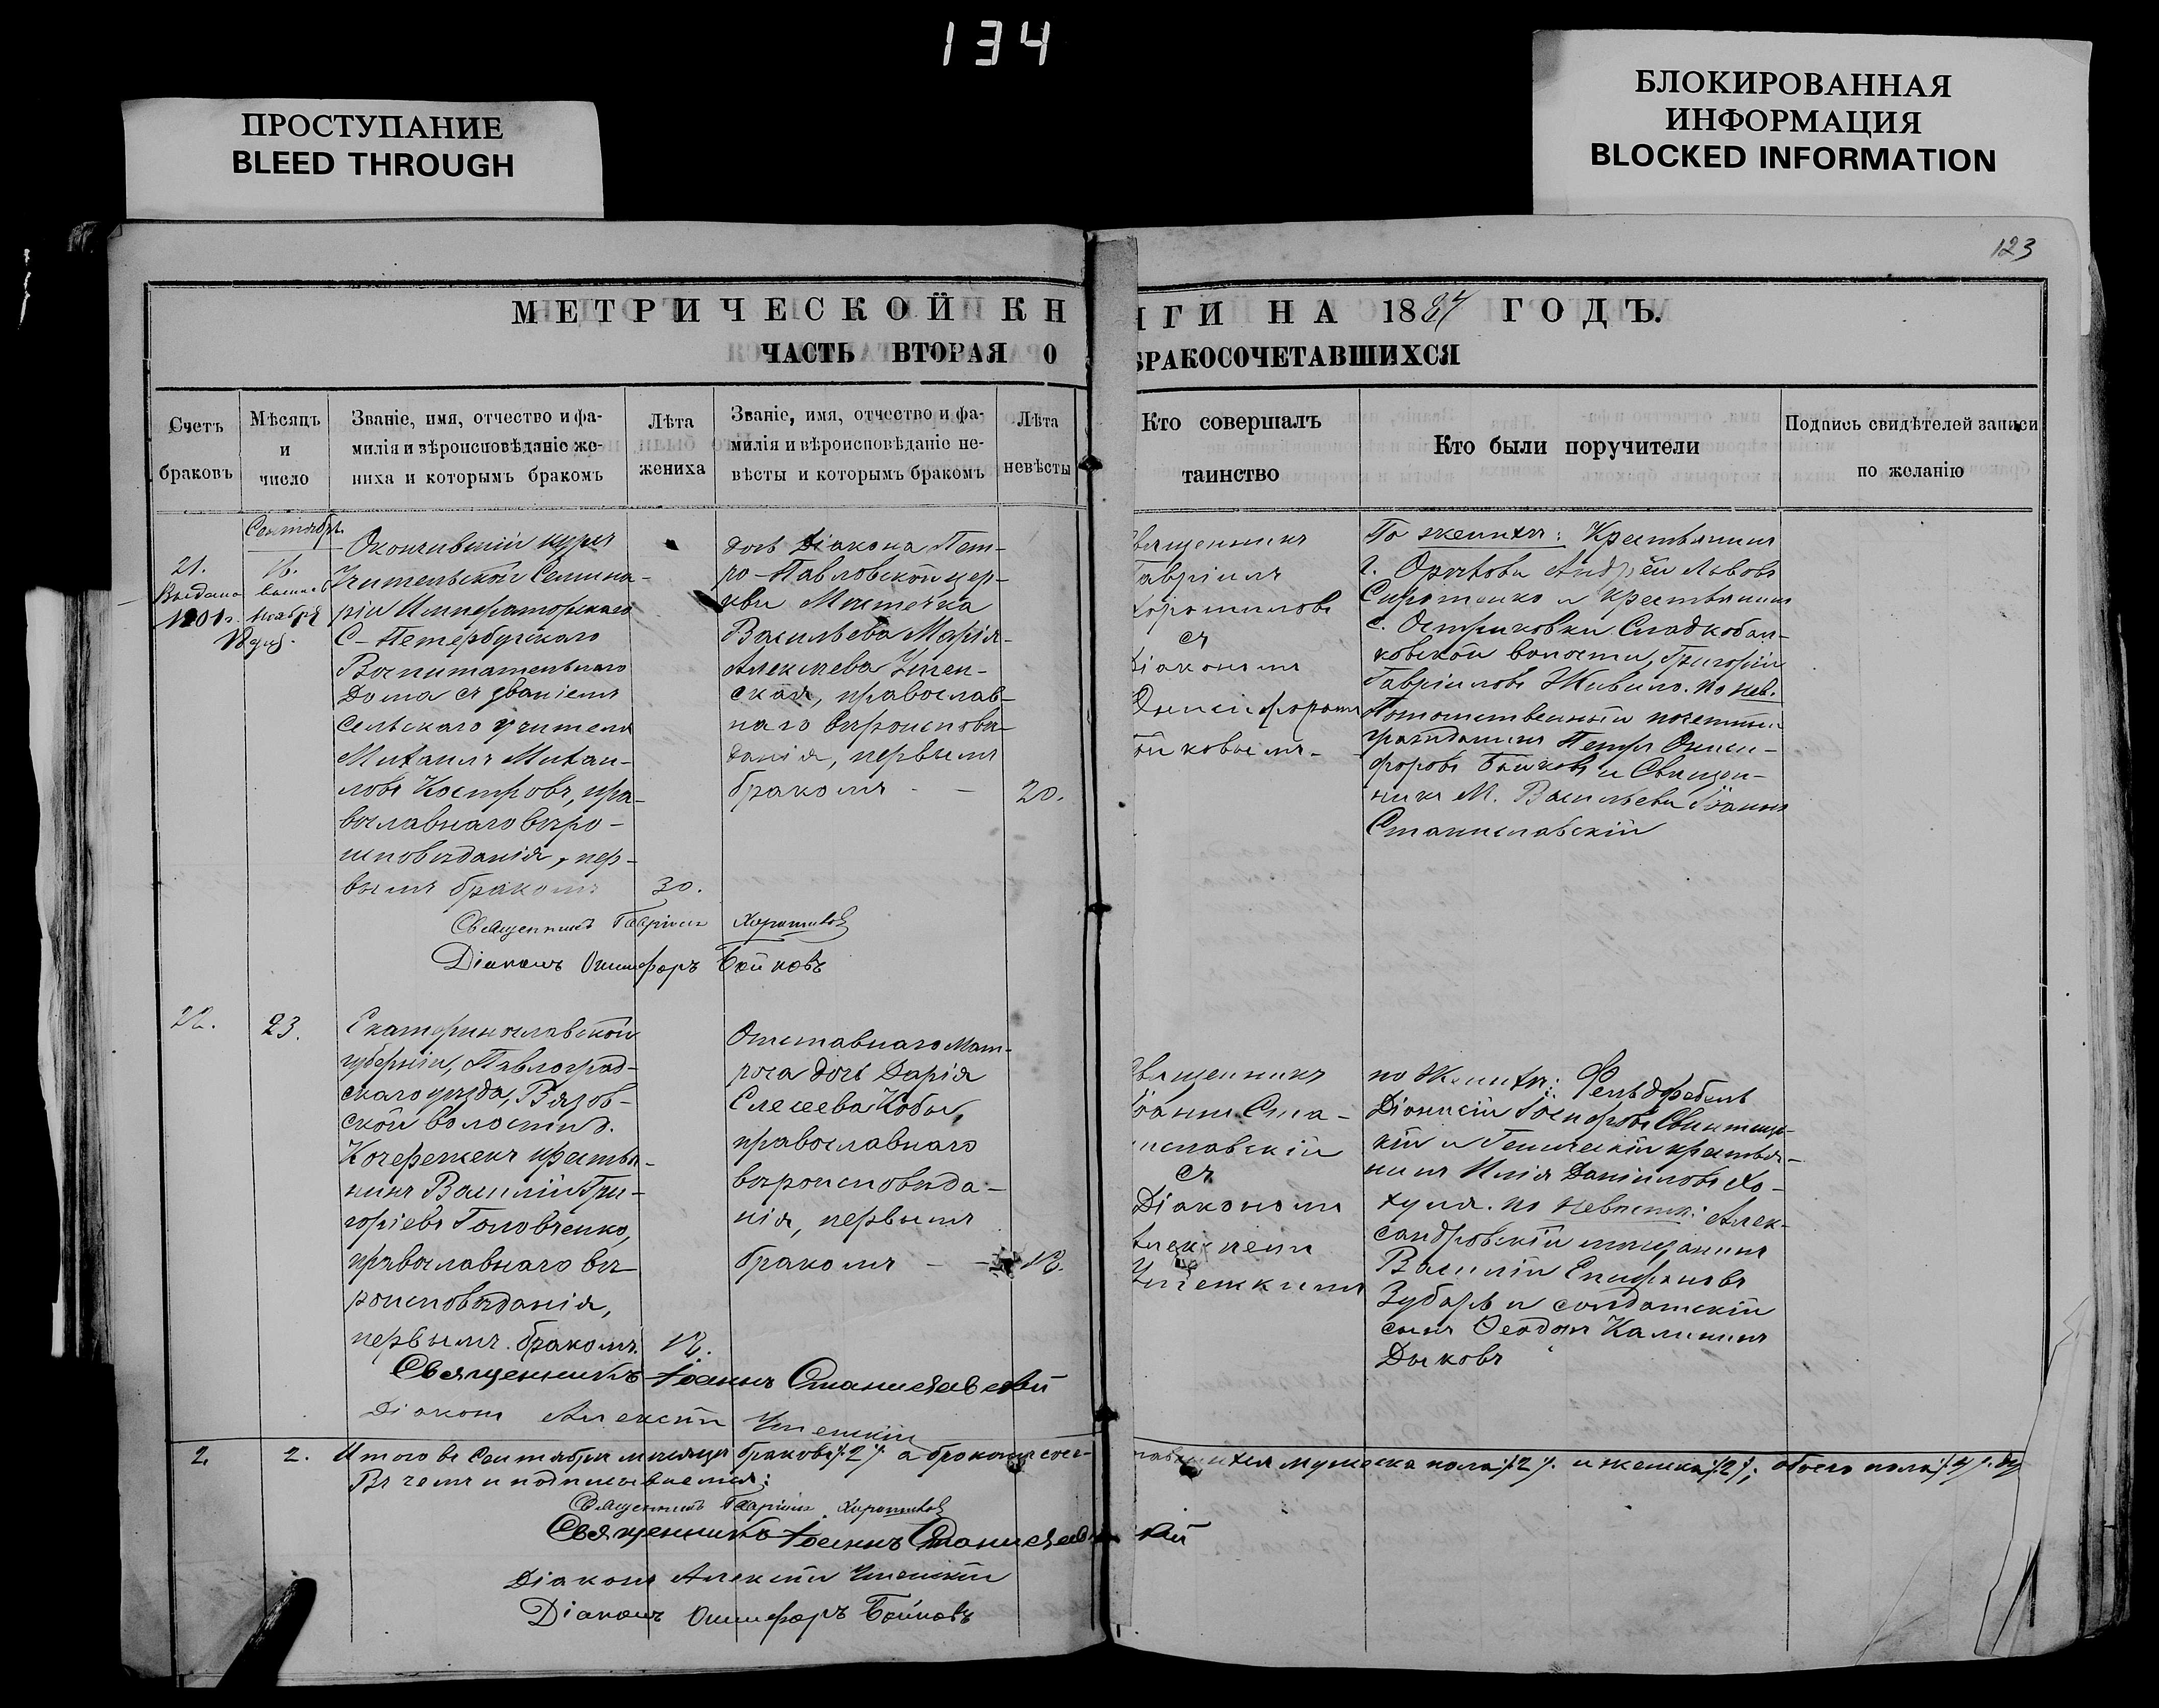 134
ПРОСТУПАНИЕ
BLEED THROUGH
БЛОКИРОВАННАЯ
ИНФОРМАЦИЯ
BLOCKED INFORMATION
123
МЕТРИЧЕСКОЙ КН
ГИ НА 1884 ГОДЪ.
ЧАСТЬ ВТОРАЯ О
БРАКОСОЧЕТАВШИХСЯ
Счетъ
браковъ
Мѣсяцъ
и
число
Званіе, имя, отчество и фа-
милія и вѣроисповѣданіе же-
ниха и которымъ бракомъ
Лѣта
жениха
Званіе, имя, отчество и фа-
милія и вѣроисповѣданіе не-
вѣсты и которымъ бракомъ
Лѣта
невѣсты
Кто совершалъ
таинство
Кто были поручители
Подпись свидѣтелей записи
по желанію
21.
Выдана
1901г.
Сентябрь
16.
Ноября
Окончившій курсъ
Учительской Семина-
ріи Императорскаго
С-Петербургскаго
Воспитательнаго
Дома съ званіемъ
сельскаго учителя
Михаилъ Михаи-
ловъ Костровъ, пра-
вославнаго вѣро-
исповѣданія, пер-
вымъ бракомъ
30.
дочь Діакона Пет-
ро-Павловской цер-
кви Мѣстечка
Васильева Марія
Алексѣева Успен-
ская, православ-
наго вѣроисповѣ-
данія, первымъ
бракомъ - -
20.
Священникъ
Гавріилъ
Хорошиловъ
съ
Діакономъ
Онисифоромъ
Бойковымъ-
По женихѣ: Крестьянинъ
г. Орѣхова Андрей Львовъ
Сиротенко и крестьянинъ
с. Остриковки Сладкобал-
ковской волости, Григорій
Гавріиловъ Живило. по нев.
Потомственный почетный
гражданинъ Петръ Ониси-
форовъ Бойковъ и Священ-
никъ М. Васильева Іоаннъ
Станиславскій
Священникъ Гавріилъ Хорошиловъ
Діаконъ Онисифоръ Бойковъ
22.
23.
Екатеринославской
губерніи, Павлоград-
скаго уѣзда, Вязов-
ской волости д.
Кочережекъ крестья-
нинъ Василій Гри-
горіевъ Головченко,
православнаго вѣ-
роисповѣданія,
первымъ бракомъ
Отставнаго Мат-
роса дочь Дарія
православнаго
вѣроисповѣда-
нія, первымъ
бракомъ - -
Священникъ
Іоаннъ Ста-
ниславскій
съ
Діакономъ
Алексѣемъ
Успенскимъ
по женихѣ: Фельдфебель
Діонисій Іосифовъ
кій и Геническій крестья-
нинъ Илія Даніиловъ Хо-
хуля. по невѣстѣ: Алек-
сандровскій мѣщанинъ
Василій Епифановъ
Зубарь и солдатскій
сынъ Феодоръ Калининъ
Дыковъ
Священникъ Іоаннъ Станиславскій
Діаконъ Алексѣй Успенскій
2.
2.
Итого въ Сентябрѣ мѣсяцѣ браковъ /.2/. а бракомъ соче-
тавшихся мужеска пола /.2/. и женска /.2/.; обоего пола /.4/.
Въ чемъ и подписываемся:
Священникъ Гавріилъ Хорошиловъ
Священникъ Іоаннъ Станиславскій
Діаконъ Алексѣй Успенскій
Діаконъ Онисифоръ Бойковъ